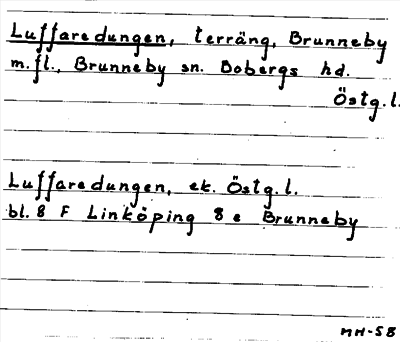 Luffaredungen, terräng, Brunneby
m.fl., Brunneby sn. Bobergs hd.
Östg.l.
Luffaredungen, ek. Östg.l.
bl. 8 F Linköping 8 e Brunneby
MH-58